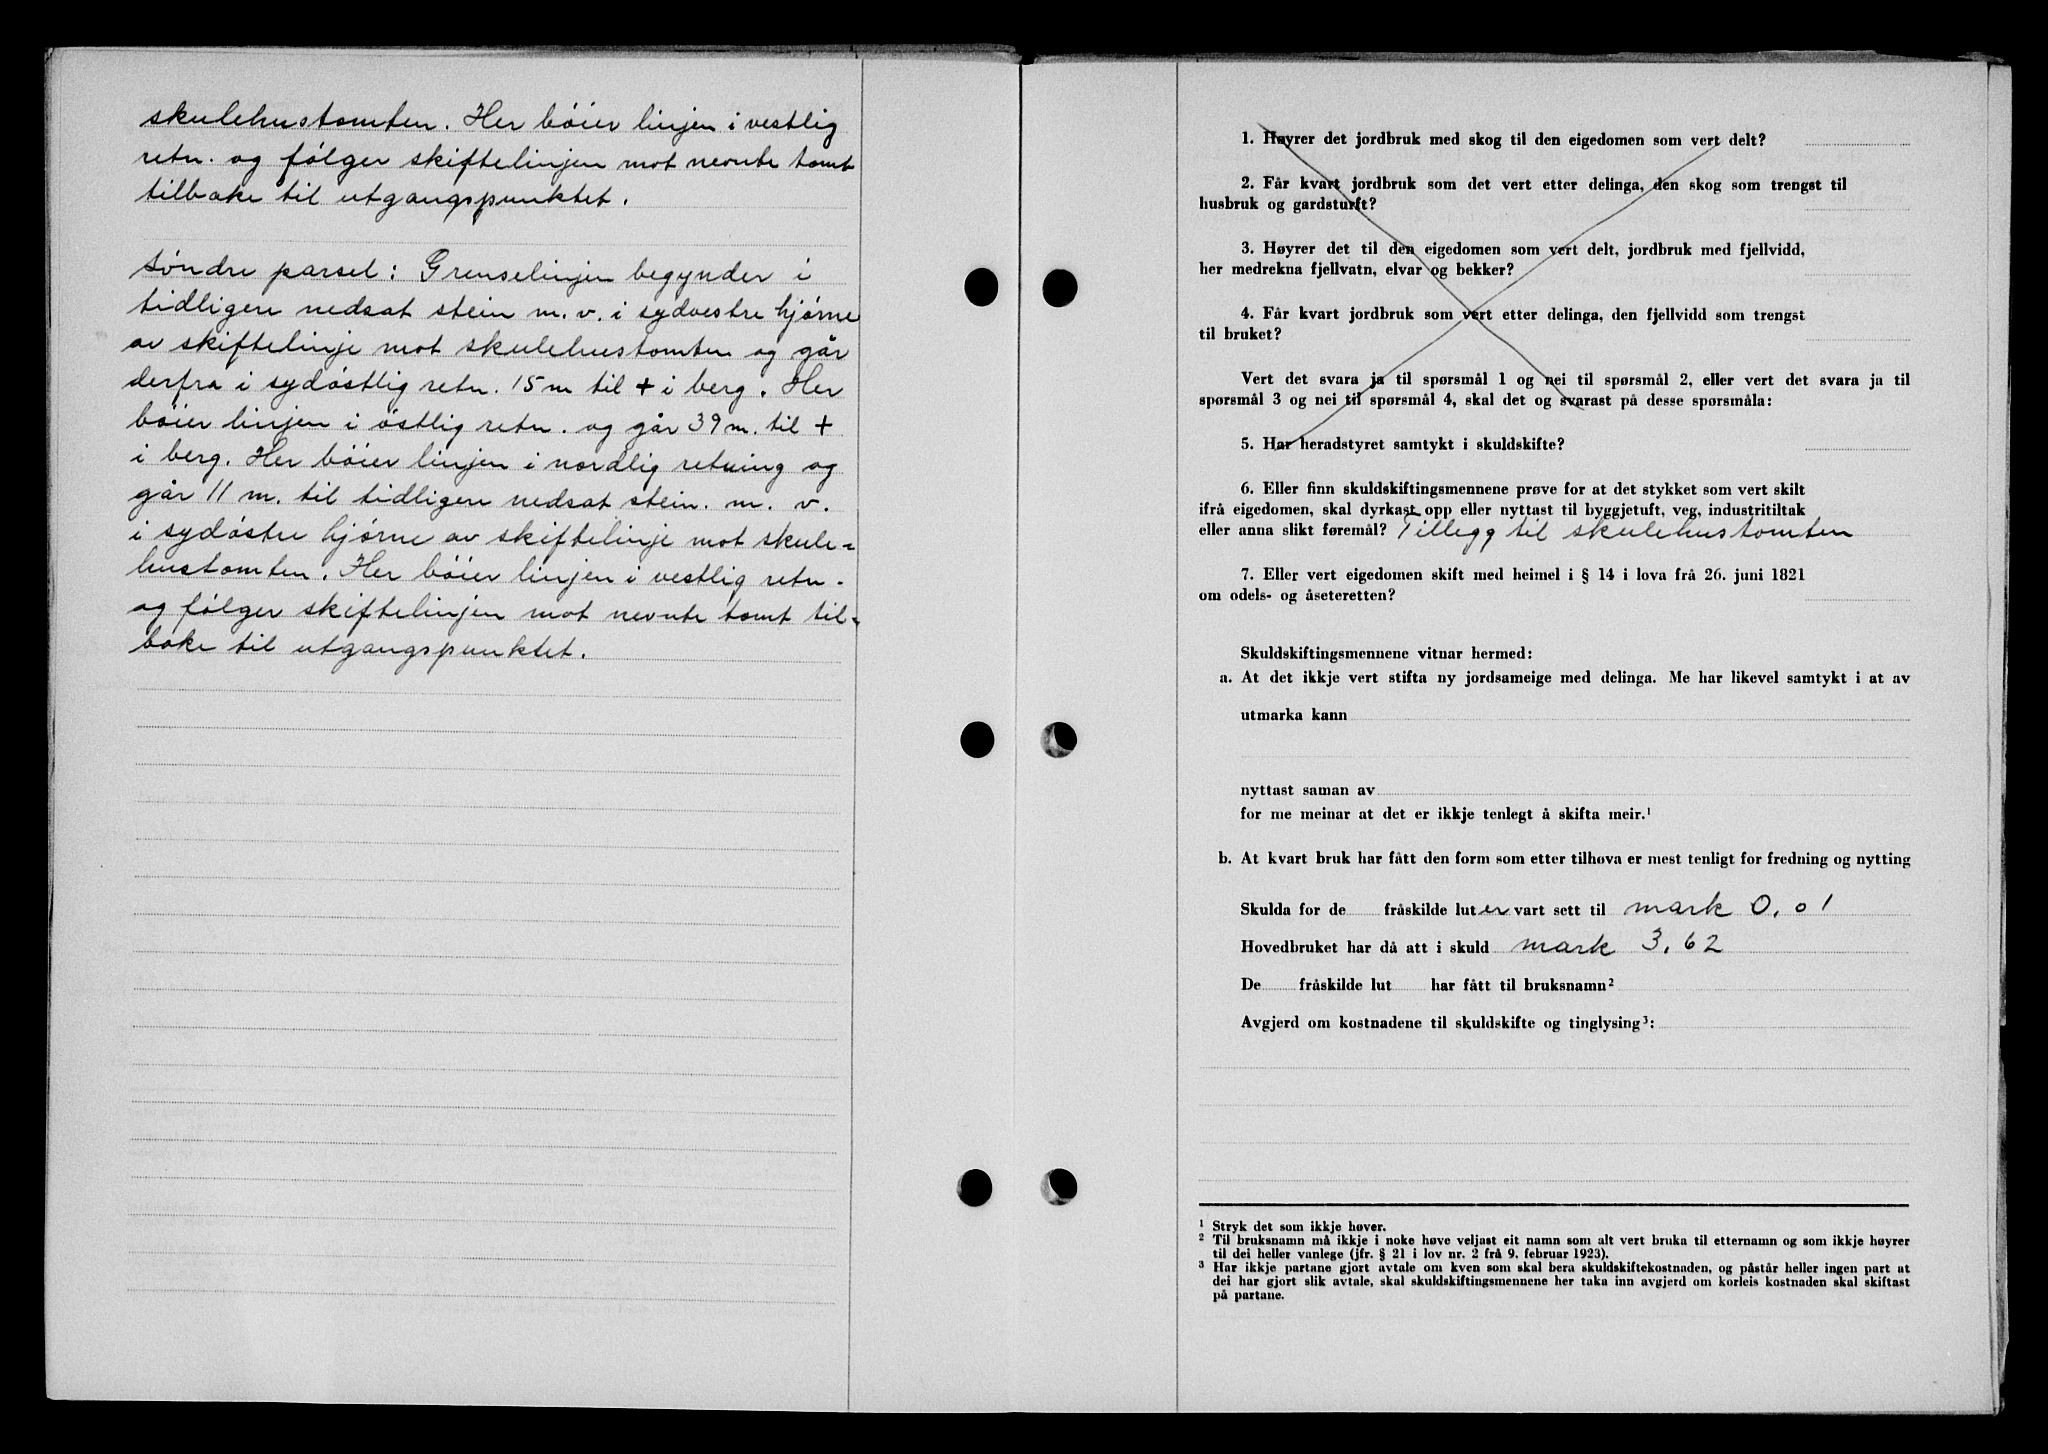 skulehustomten. Her bóier linjen i vestlig
retn. og fólger skiftelinjen mot nevnte tomt
tilbake til utgangspunktet.
Söndre parsel: Grenselinjen begynder i
tidligere nedsat stein m. v. i sydvestre hjørne
av skiftelinje mot skulehustomten og går
derfra i sydóstlig retn. 15 m til + i berg. Her
bóier linjen i óstlig retn. og går 39 m. til +
i berg. Her bóier linjen i nordlig retning og
går 11 m. til tidligere nedsat stein. m. v.
i sydóstre hjørne av skiftelinje mot skule-
hustomten. Her bóier linjen i vestlig retn.
og fólger skiftelinjen mot nevnte tomt til-
bake til utgangspunktet.
1. Høyrer det jordbruk med skog til den eigedomen som vert delt?
2. Får kvart jordbruk som det vert etter delinga, den skog som trengst til
husbruk og gardsturft?
3. Høyrer det til den eigedomen som vert delt, jordbruk med fjellvidd,
her medrekna fjellvatn, elvar og bekker?
4. Får kvart jordbruk som vert etter delinga, den fjellvidd som trengst
til bruket?
Vert det svara ja til spørsmål 1 og nei til spørsmål 2, eller vert det svara ja til
spørsmål 3 og nei til spørsmål 4, skal det og svarast på desse spørsmåla:
5. Har heradstyret samtykt i skuldskifte?
6. Eller finn skuldskiftingsmennene prøve for at det stykket som vert skilt
ifrå eigedomen, skal dyrkast opp eller nyttast til byggjetuft, veg, industritiltak
eller anna slikt føremål? Tillegg til skulehustomten
7. Eller vert eigedomen skift med heimel i § 14 i lova frå 26. juni 1821
om odels- og åseteretten?
Skuldskiftingsmennene vitnar hermed:
a. At det ikkje vert stifta ny jordsameige med delinga. Me har likevel samtykt i at av
utmarka kann
nyttast saman av
for me meinar at det er ikkje tenlegt å skifta meir.¹
b. At kvart bruk har fått den form som etter tilhøva er mest tenligt for fredning og nytting
Skulda for de fråskilde luter vart sett til mark 0,01
Hovedbruket har då att i skuld mark 3,62
De fråskilde lut har fått til bruksnamn²
Avgjerd om kostnadene til skuldskifte og tinglysing³:
¹ Stryk det som ikkje høver.
² Til bruksnamn må ikkje i noke høve veljast eit namn som alt vert bruka til etternamn og som ikkje høyrer
til dei heller vanlege (jfr. § 21 i lov nr. 2 frå 9. februar 1923).
³ Har ikkje partane gjort avtale om kven som skal bera skuldskiftekostnaden, og påstår heller ingen part at
dei har gjort slik avtale, skal skuldskiftingsmennene her taka inn avgjerd om korleis kostnaden skal skiftast
på partane.